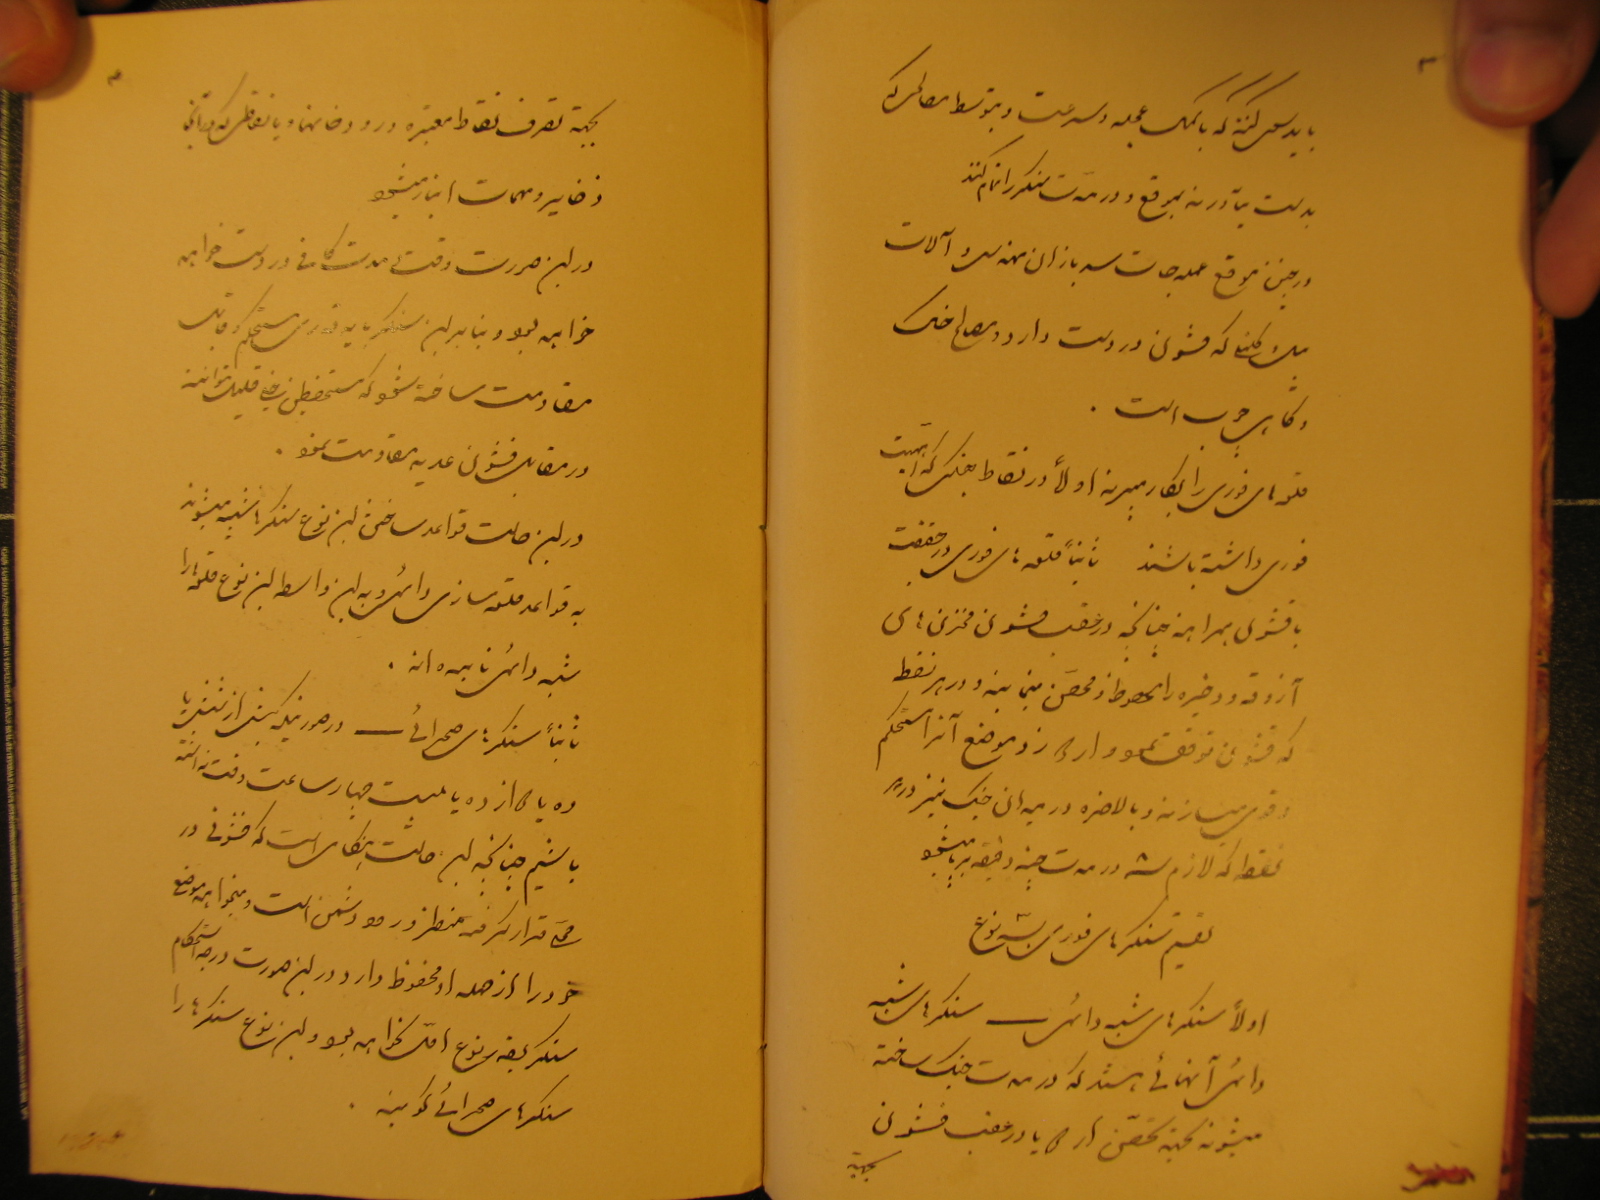 ۳
باید سعی کنند که با کمک عجله و سرعت و بتوسط مصالحی که
بدست بیاورند بموقع و در مدت سنکر را تمام کنند
در چنین موقع عمله جات سربازان مهندس و آلات
که قشونی در دست دارد و مصالح خاک
و کاهی چوب است ۰
قلعه‌های فوری را بکار میبرند اولاً در نقاط جنکی که اهمیت
فوری داشته باشند ثانیاً قلعه های فوری در حقیقت
با قشون همراهند چنانچه در عقب قشون مخزن های
آزوقه و ذخیره را محفوظ و محصّن مینمایند و در هر نقطه
که قشون توقف نمود و اردو زد موضع آنرا مستحکم
و قوی میسازند و بالاخره در میدان جنک نیز در هر
نقطه که لازم شد در مدت چند دقیقه برپا میشود
تقسیم سنکرهای فوری بسه نوع
اولاً سنکرهای شبه دائمی — سنکرهای شبه
دائمی آنهائی هستند که در مدت جنک ساخته
میشوند بجهة تحصّن اردو یا در عقب قشون
بجهة
۴
بجهة تصرف نقاط معتبره و رودخانها و یا نقاطی که در آنجا
ذخایر و مهمات انبار میشود
در این صورت وقت و مدت کافی در دست خواهد
خواهد بود و بنابراین سنکر باید قدری مستحکم و قابل
مقاومت ساخته شود که مستحفظین قلیل توانند
در مقابل قشون عدیده مقاومت نمود ۰
در این حالت قواعد ساختن این نوع سنکرها شبیه میشوند
به قواعد قلعه سازی دائمی و به این واسطه این نوع قلعه‌ها را
شبه دائمی نامیده اند ۰
ثانیاً سنکرهای صحرائی — در صورتیکه بیش از
ده یا دوازده یا بیست چهار ساعت وقت نداشته
باشیم چنانچه این حالت هنکامی است که قشونی در
محلی قرار کرفته منتظر ورود دشمن است و میخواهد موضع
خود را از صدمه او محفوظ دارد در این صورت درجه استحکام
سنکر بقدر نوع اول نخواهد بود و این نوع سنکرها را
سنکرهای صحرائی کویند ۰